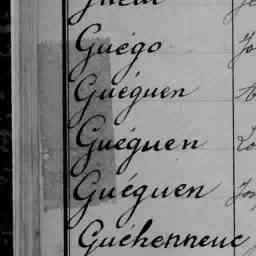 Guégo
Guéguen
Guéguen
Guéguen
Guéhenneuc